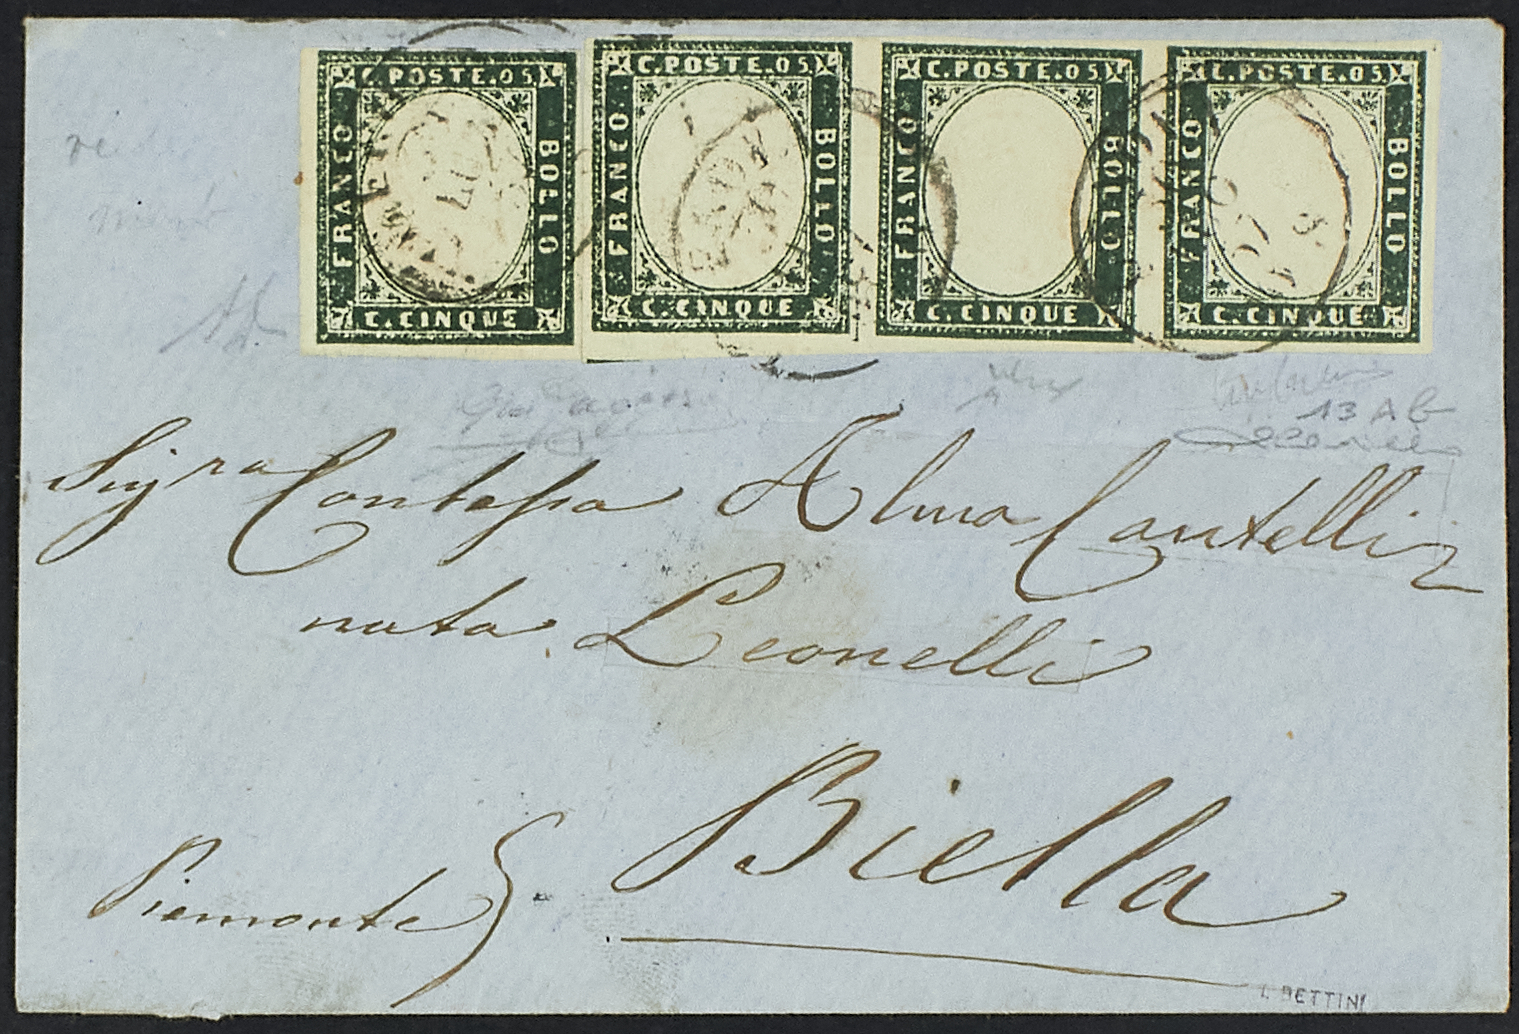 C. POSTE. 05 C. POSTE. 05 C. POSTE. 05 C. POSTE. 05
FRANCO BOLLO FRANCO BOLLO FRANCO BOLLO FRANCO BOLLO
C. CINQUE C. CINQUE C. CINQUE C. CINQUE
13 A b
Sigra Contessa Alma Cantelli
nata Leonelli
Biella
Piemonte
L. BETTINI